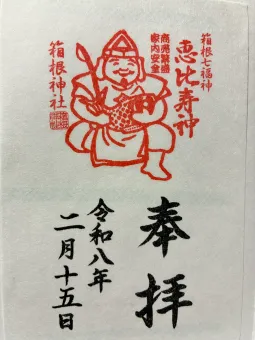 箱根七福神
恵比寿神
商売繁盛
家内安全
箱根神社
奉拝
令和八年
二月十五日